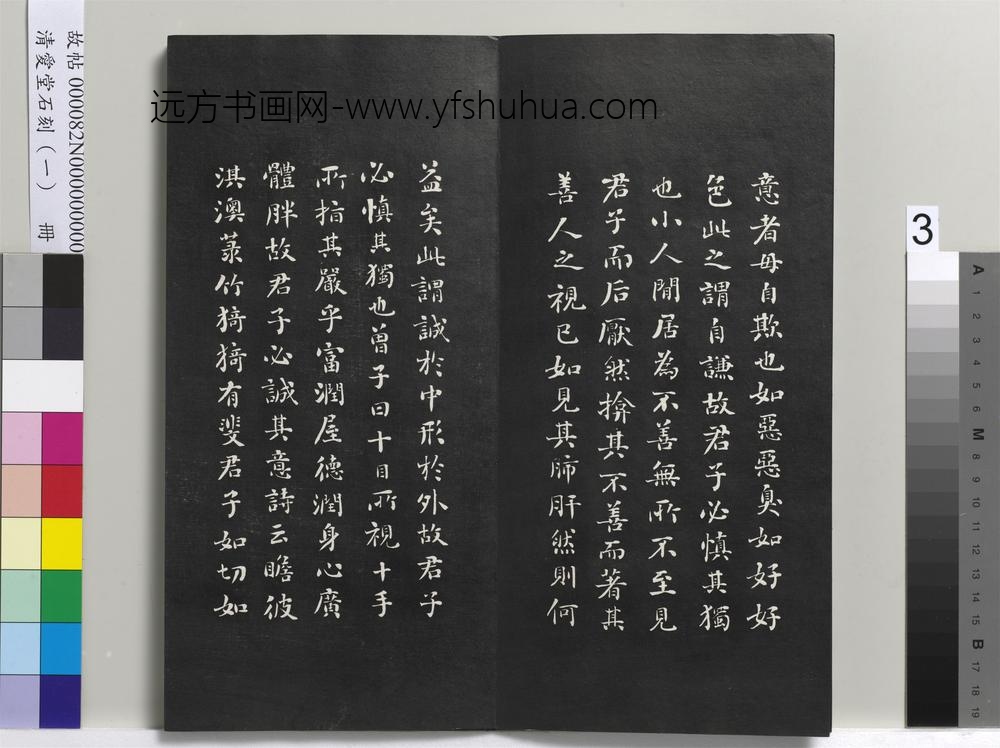 意者毋自欺也如惡惡臭如好好
色此之謂自謙故君子必慎其獨
也小人閒居為不善無所不至見
君子而后厭然揜其不善而著其
善人之視已如見其肺肝然則何
益矣此謂誠於中形於外故君子
必慎其獨也曾子曰十目所視十手
所指其嚴乎富潤屋德潤身心廣
體胖故君子必誠其意詩云瞻彼
淇澳菉竹猗猗有斐君子如切如
远方书画网-www.yfshuhua.com
故帖 000082N000000000
清愛堂石刻（一） 冊
3
A
1
2
3
4
5
6
M
8
9
10
11
12
13
14
15
B
17
18
19